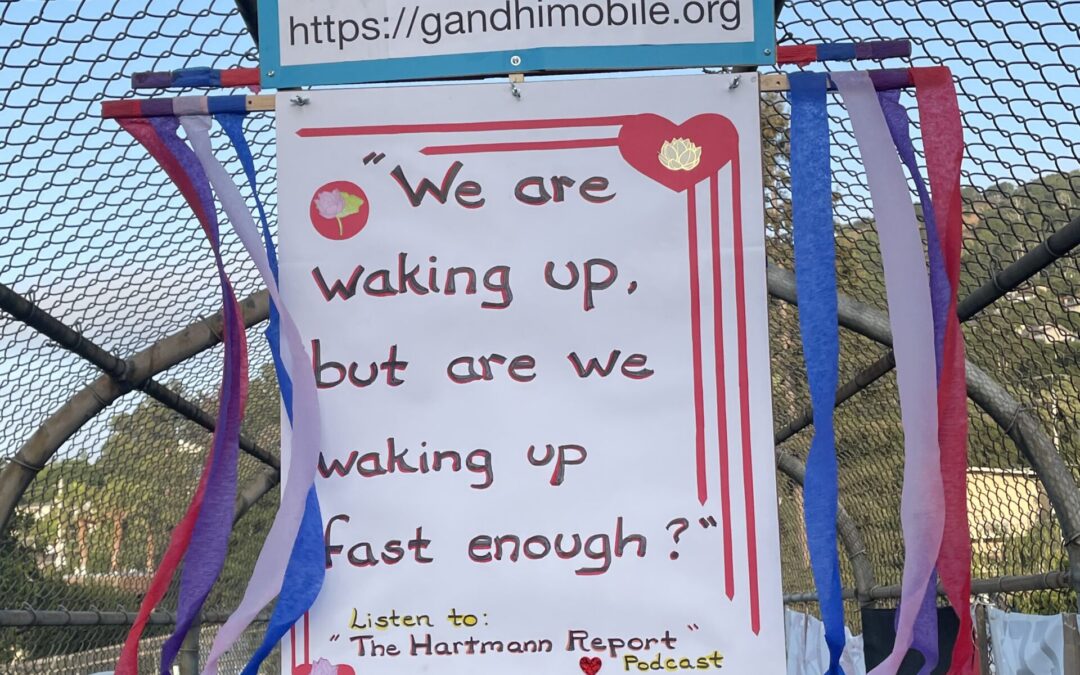 https://gandhimobile.org
"We are
waking up,
but are we
waking up
fast enough?"
Listen to:
"The Hartmann Report"
Podcast